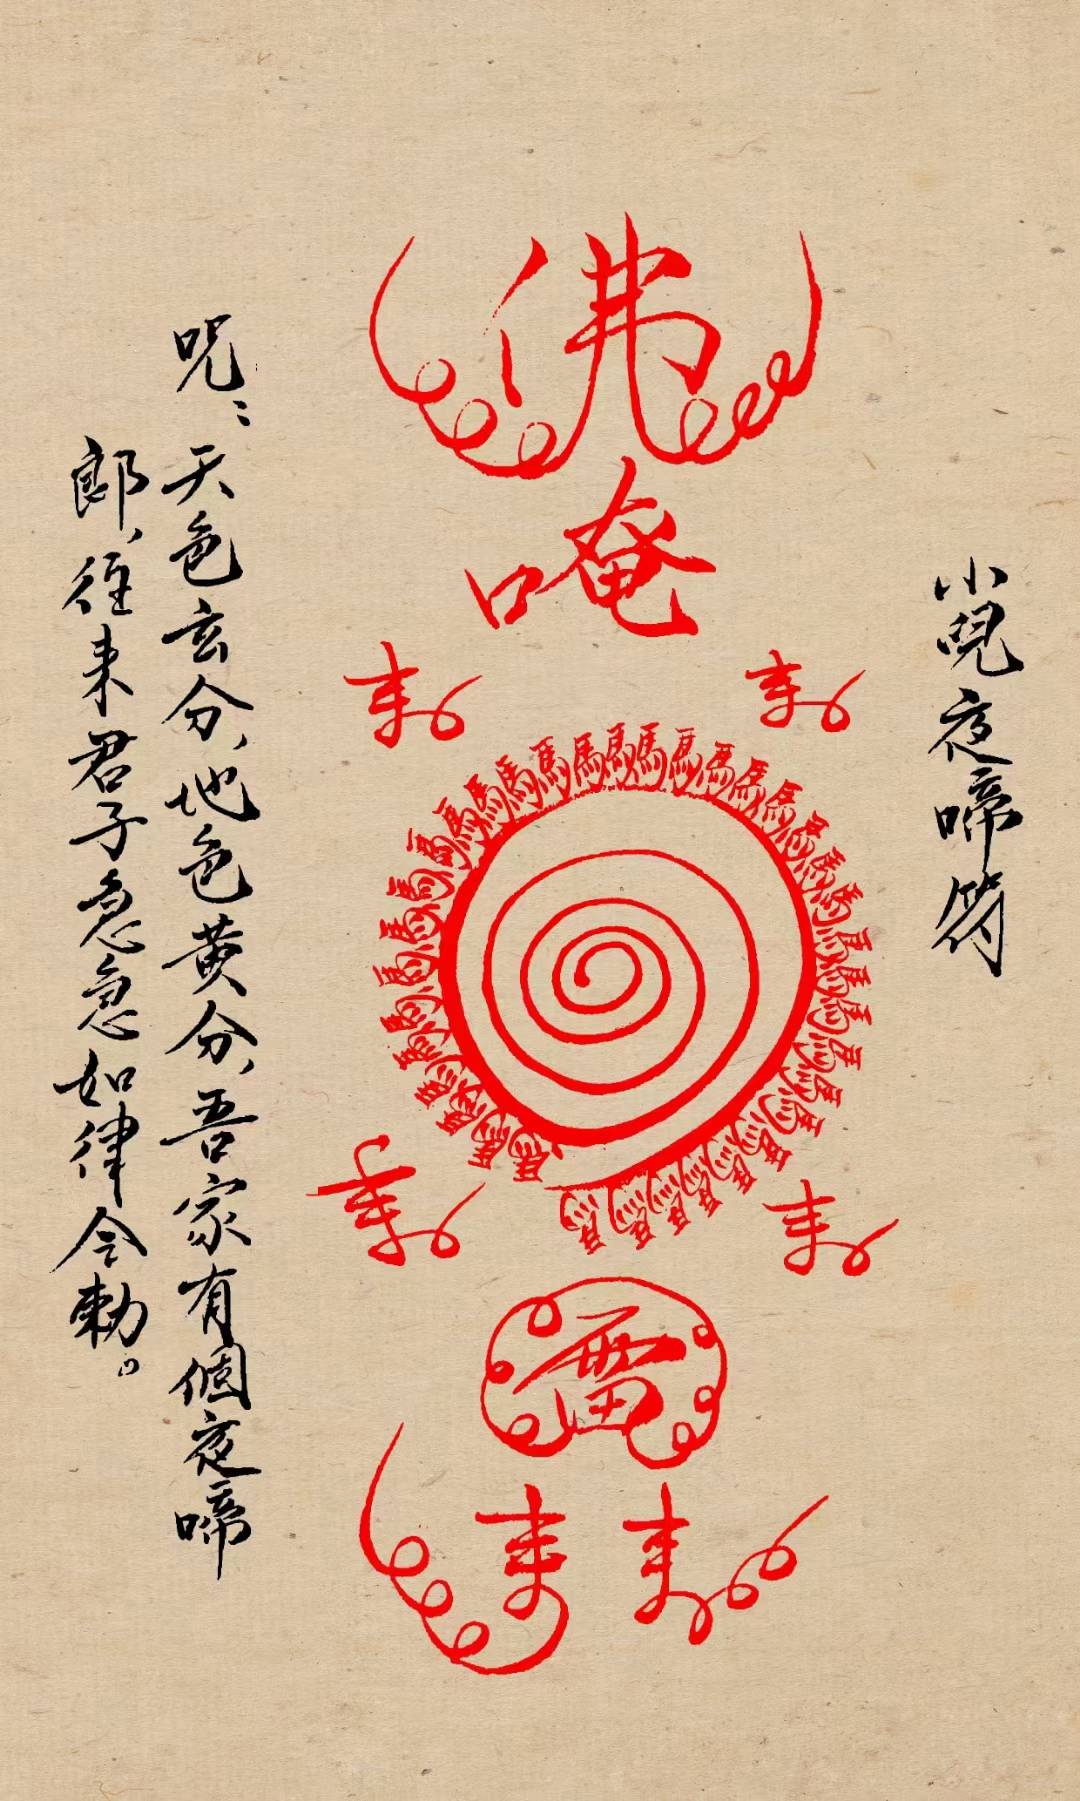 小兒夜啼符
佛
唵
馬馬馬馬馬馬馬馬馬馬馬馬馬馬馬馬馬馬馬馬馬馬馬馬馬馬馬馬馬馬馬馬馬馬馬馬馬馬馬馬
雷
呪：天色玄分、地色黄分、吾家有個夜啼
郎、往来君子急急如律令勅。